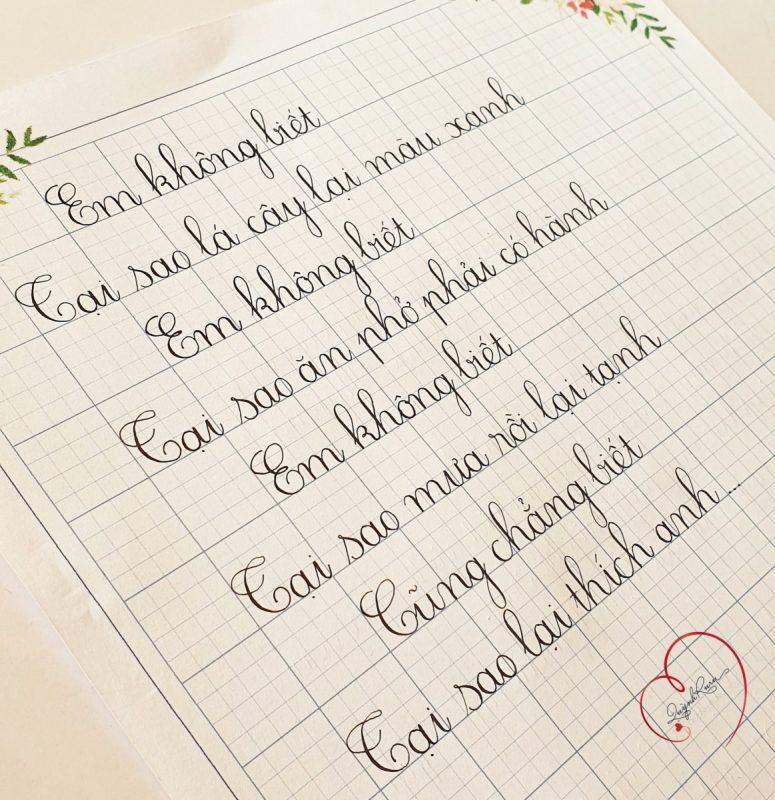 Em không biết
Tại sao lá cây lại màu xanh
Em không biết
Tại sao ăn phở phải có hành
Em không biết
Tại sao mưa rồi lại tạnh
Cũng chẳng biết
Tại sao lại thích anh ...